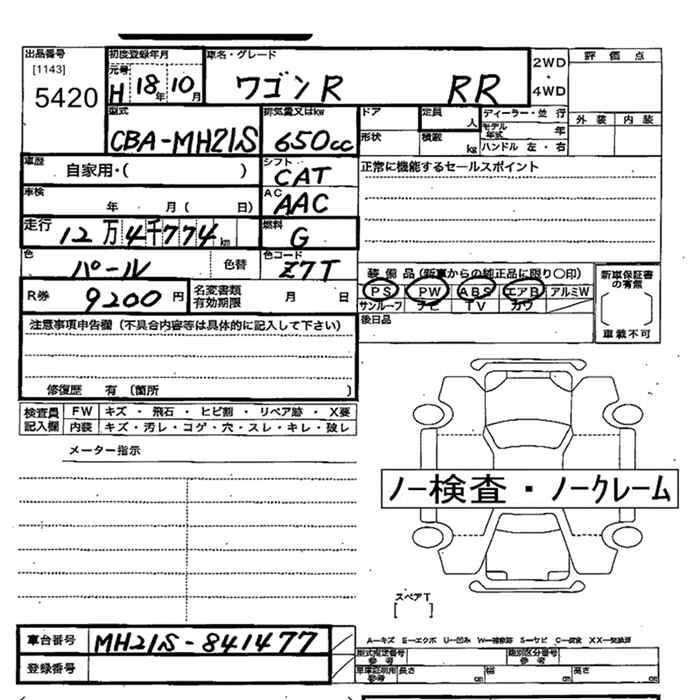 出品番号 初度登録年月 車名・グレード 2WD 評価点
[1143] 元号
5420 H 18年 10月 ワゴンR RR ・4WD
型式 排気量又はkw ドア 定員 人 ディーラー・並行 外装 内装
CBA-MH21S 650cc 形状 積載 kg モデル年式 年
ハンドル 左・右
車歴 自家用・( ) シフト CAT 正常に機能するセールスポイント
車検 年 月( 日) AC AAC
走行 12万4千774km 燃料 G
色 パール 色替 色コード Z7T 装備品(新車からの純正品に限り〇印) 新車保証書の有無
R券 9200円 名変書類有効期限 月 日 PS PW ABS エアB アルミW
サンルーフ ナビ TV カワ
注意事項申告欄(不具合内容等は具体的に記入して下さい) 後日品 車載不可
修復歴 有(箇所 )
検査員 FW キズ・飛石・ヒビ割・リペア跡・X要
記入欄 内装 キズ・汚レ・コゲ・穴・スレ・キレ・破レ
メーター指示
ノー検査・ノークレーム
スペアT
[ ]
車台番号 MH21S-841477 A—キズ E—エクボ U—凹み W—補修跡 S—サビ C—腐食 XX—交換済
登録番号 型式指定番号 参考 類別区分番号 参考
車庫証明用 参考 長さ cm 幅 cm 高さ cm